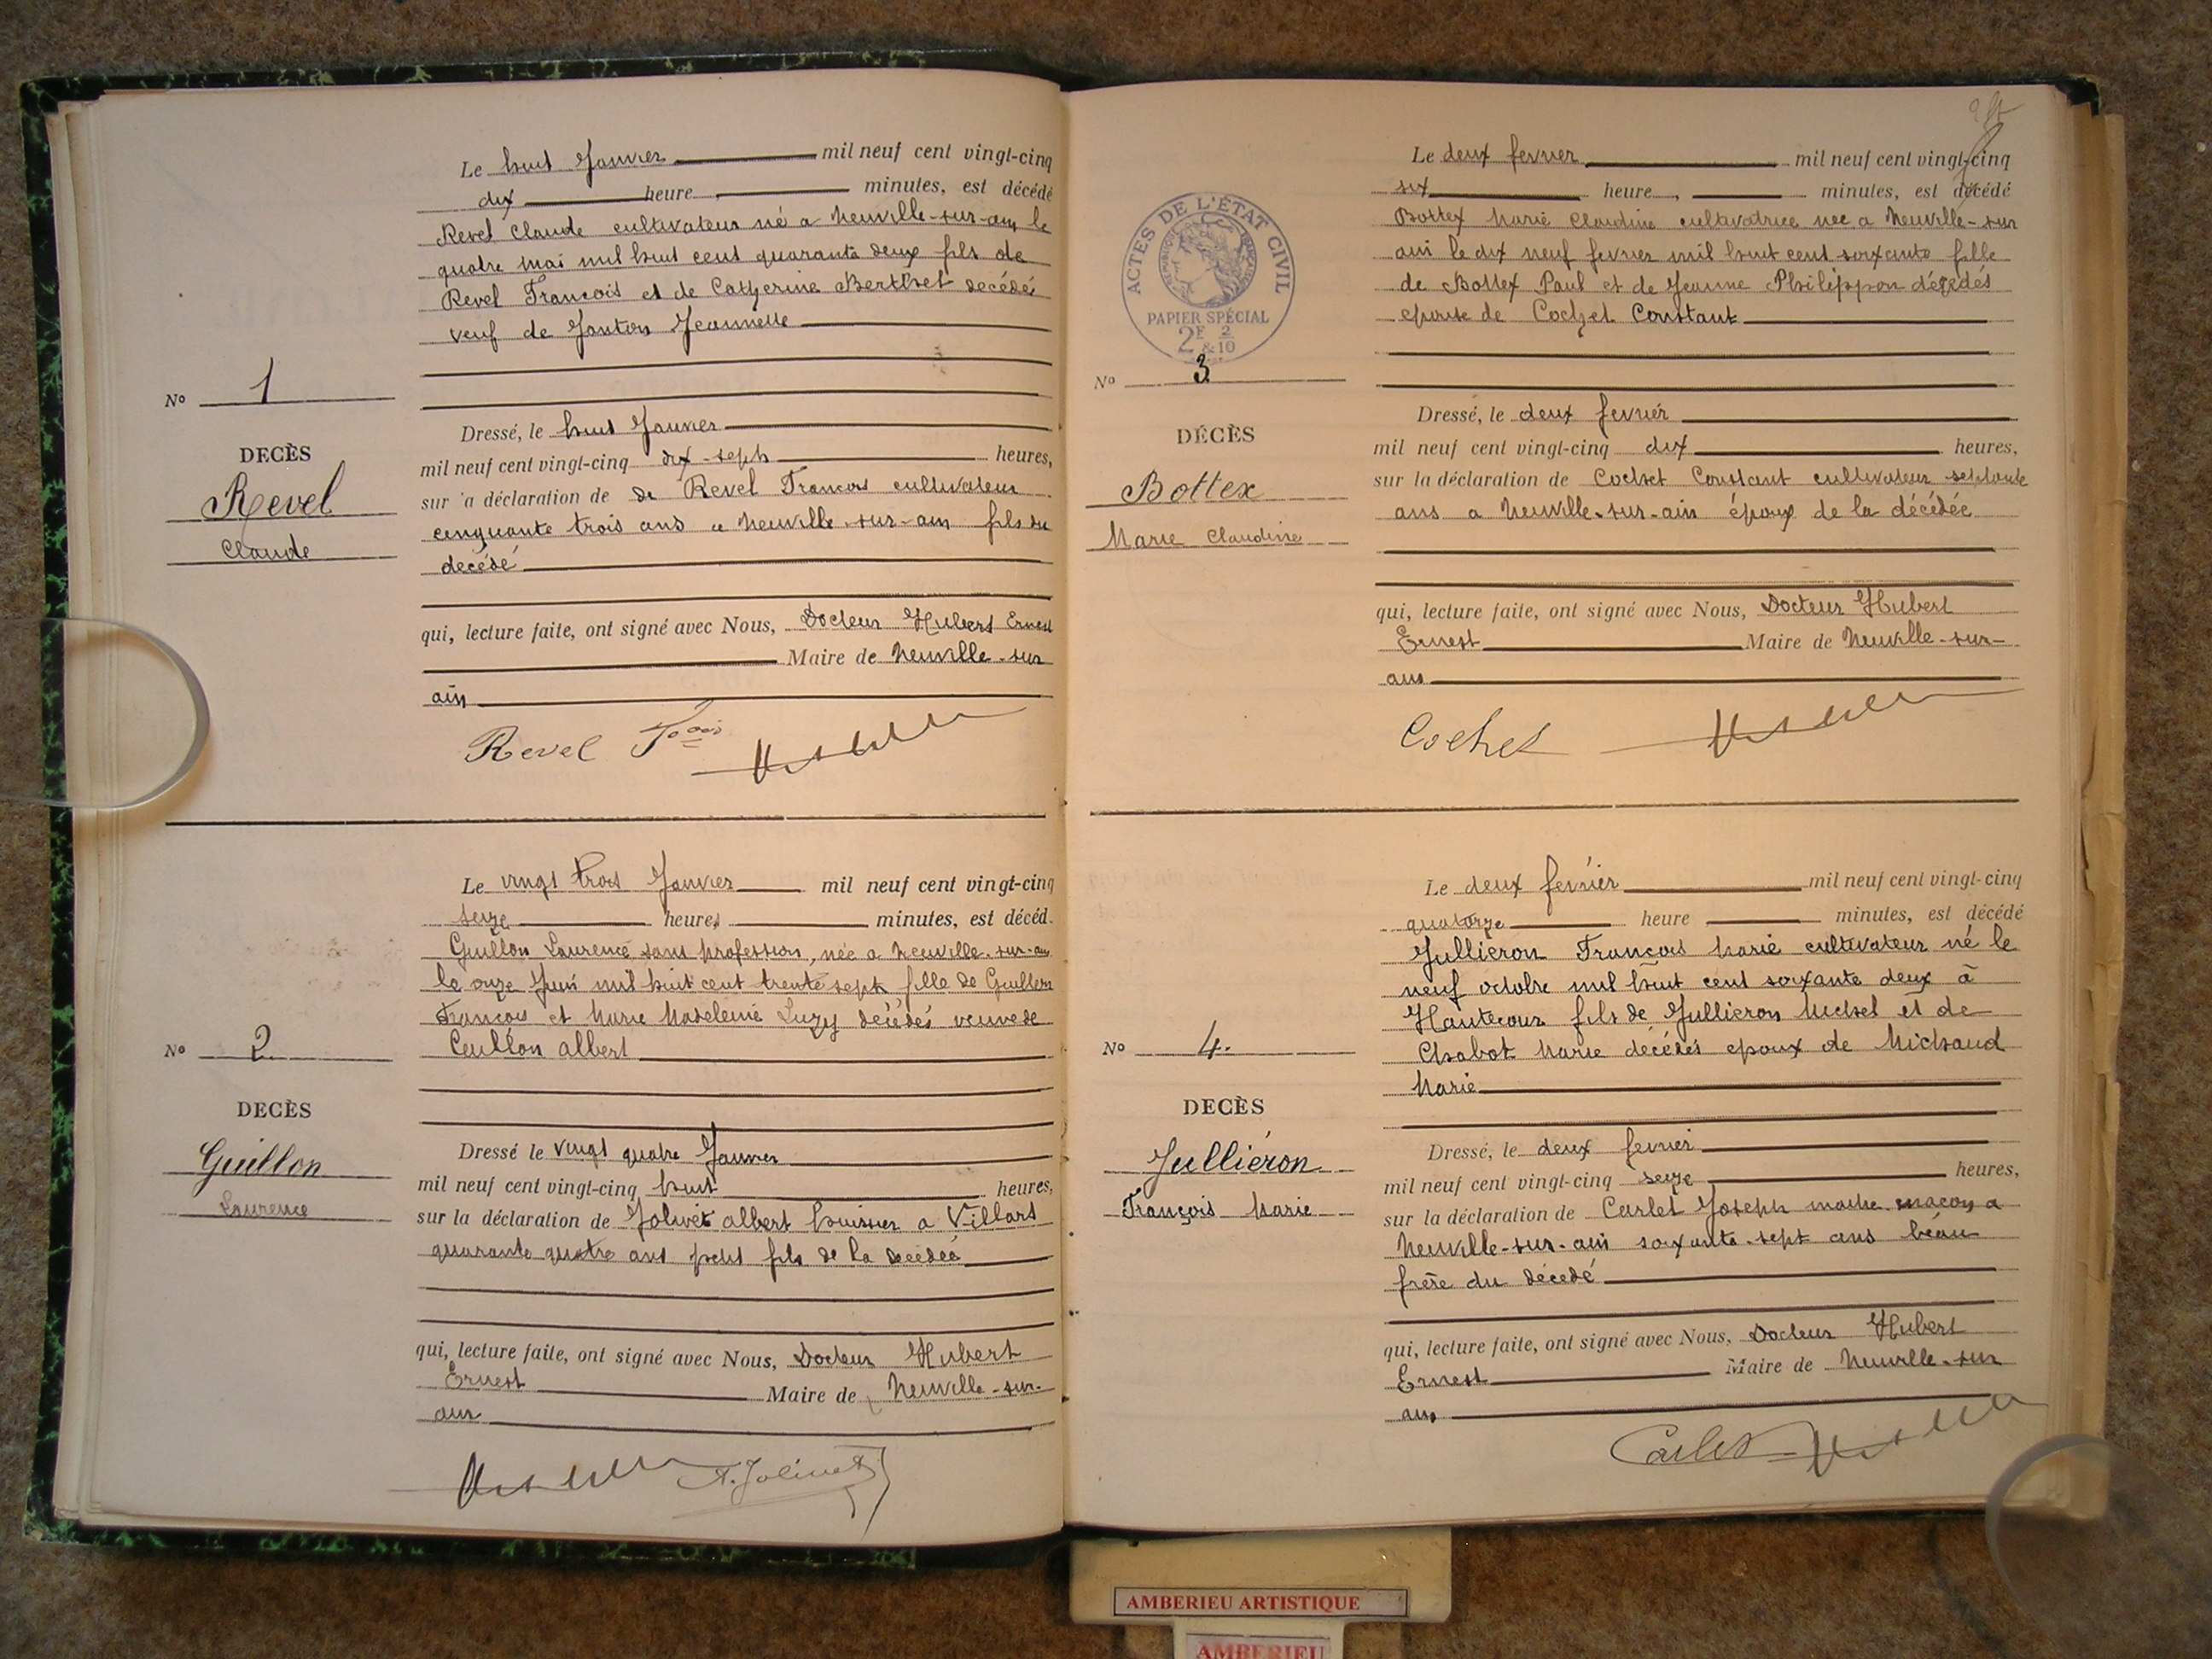 Le huit Janvier mil neuf cent vingt-cinq
dix heure, minutes, est décédé
Revel Claude cultivateur né a Neuville-sur-ain le
quatre mai mil huit cent quaranta deux fils de
Revel Francois et de Catherine Berthet decédés
veuf de Jeannette
No 1
DECÈS
Revel
Claude
Dressé, le huit Janvier
mil neuf cent vingt-cinq dix-sept heures,
sur a déclaration de de Revel Francois cultivateur
cinquante trois ans a Neuville-sur-ain fils du
decédé
qui, lecture faite, ont signé avec Nous, Docteur Hubert Ernest
Maire de Neuville-sur
ain
Revel
Le vingt trois Janvier mil neuf cent vingt-cinq
seize heures minutes, est décéd
Guillon Laurence sans profession, née a Neuville-sur-ain
le onze Juin mil huit cent trente sept fille de Guillon
Francois et Marie Madeleine Luzy décédés veuve de
albert
No 2
DECÈS
Guillon
Laurence
Dressé le vingt quatre Janvier
mil neuf cent vingt-cinq huit heures,
sur la déclaration de Jolivet albert huissier a Villars
quarante quatre ans petit fils de la decédeé
qui, lecture faite, ont signé avec Nous, Docteur Hubert
Ernest Maire de Neuville-sur-
ain
A. Jolivet
Le deux fevrier mil neuf cent vingt-cinq
six heure, minutes, est décédé
Bottex Marie Claudine cultivatrice nee a Neuville-sur
ain le dix neuf fevrier mil huit cent soixante fille
de Bottex Paul et de Jeanne Philippon décédés
epouse de Cochet Constant
ACTES DE L'ÉTAT CIVIL
RÉPUBLIQUE FRANÇAISE
PAPIER SPÉCIAL
2E 2
&10
No 3
DÉCÈS
Bottex
Marie Claudine
Dressé, le deux fevrier
mil neuf cent vingt-cinq dix heures,
sur la déclaration de Cochet Constant cultivateur septante
ans a Neuville-sur-ain époux de la décédée
qui, lecture faite, ont signé avec Nous, Docteur Hubert
Ernest Maire de Neuville-sur-
ain
Cochet
Le deux fevrier mil neuf cent vingt-cinq
quatorze heure minutes, est décédé
Jullieron François Marie cultivateur né le
neuf octobre mil huit cent soixante deux à
Hautecour fils de Jullieron Michel et de
Chabot Marie décédés epoux de Michaud
Marie
No 4.
DECÈS
Julliéron
François Marie
Dressé, le deux fevrier
mil neuf cent vingt-cinq seize heures,
sur la déclaration de Carlet Joseph maçon a
Neuville-sur-ain soixante-sept ans beau
frere du décédé
qui, lecture faite, ont signé avec Nous, Docteur Hubert
Ernest Maire de Neuville-sur
ain
Carlet
AMBERIEU ARTISTIQUE
AMBERIEU